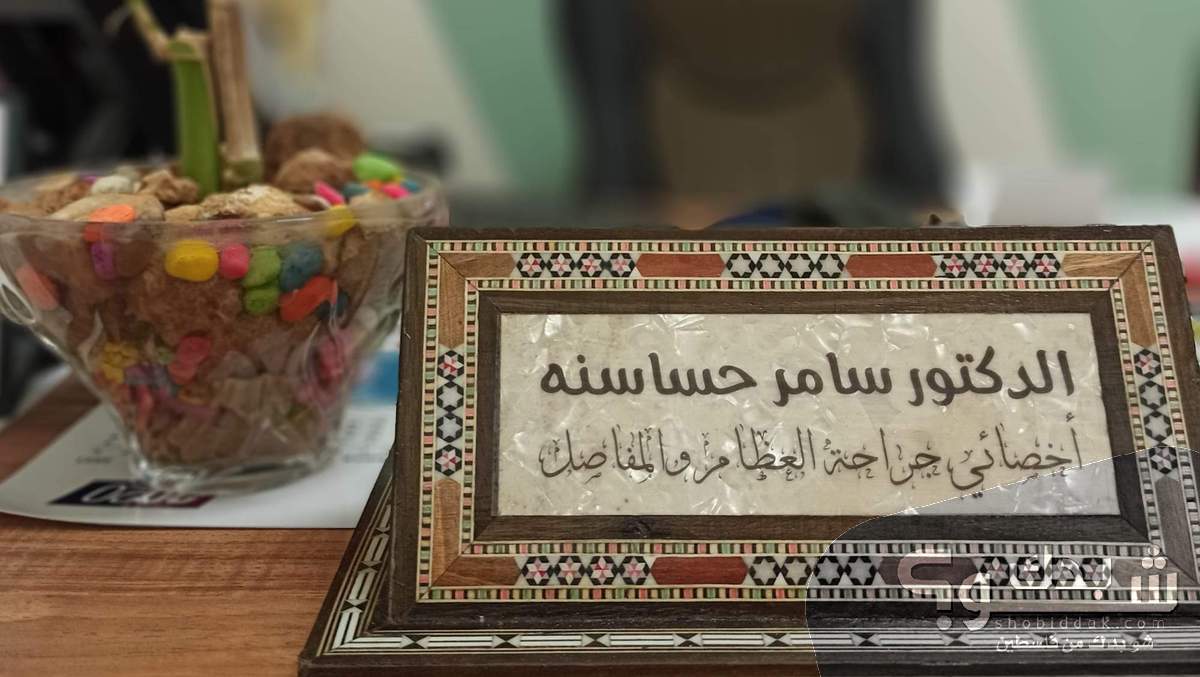 الدكتور سامر حساسنه
أخصائي جراحة العظام والمفاصل
شو بدك
shobiddak.com
شو بدك من فلسطين